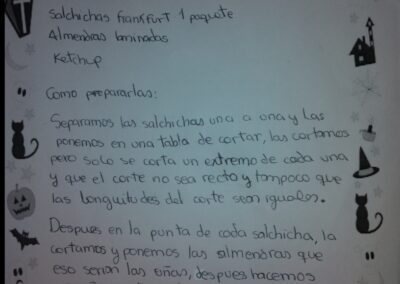 Salchichas frankfurt 1 paquete
Almendras laminadas
Ketchup
Como prepararlas:
Separamos las salchichas una a una y las
ponemos en una tabla de cortar, las cortamos
pero solo se corta un extremo de cada una
y que el corte no sea recto y tampoco que
las longuitudes del corte sean iguales.
Despues en la punta de cada salchicha, la
cortamos y ponemos las almendras que
eso serian las uñas, despues hacemos